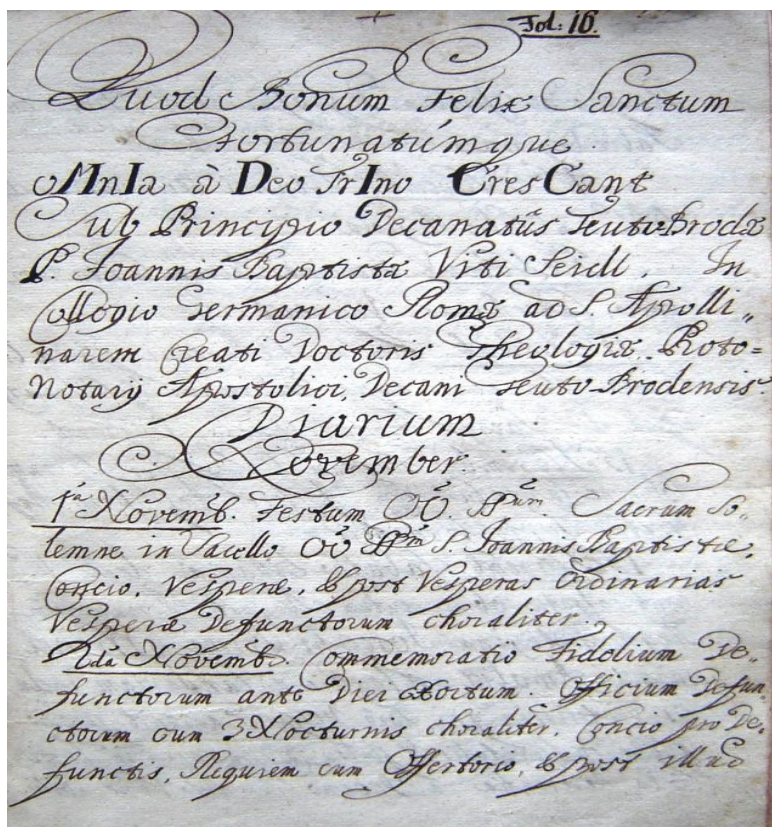 Fol: 16.
Quod Bonum Felix Sanctum
Fortunatúmque
oMnIa à Deo TrIno CresCant
Sub Principio Decanatûs Teuto-Brodæ
P. Joannis Baptistæ Viti Seidl, In
Collegio Germanico Romæ ad S. Apolli„
narem Creati Doctoris Theologiæ, Proto=
Notarij Apostolici, Decani Teuto-Brodensis.
Diarium
November.
1ma Novemb. Festum OO. SSrum. Sacrum so„
lemne in Sacello OO SSrum S. Joannis Baptistæ.
Concio, Vesperæ, & post Vesperas ordinarias
Vesperæ Defunctorum choraliter.
2da Novemb. Commemoratio Fidelium De„
functorum ante Diei Exortum. Officium Defun„
ctorum cum 3 Nocturnis choraliter, Concio pro De„
functis, Requiem cum Offertorio, & post illud